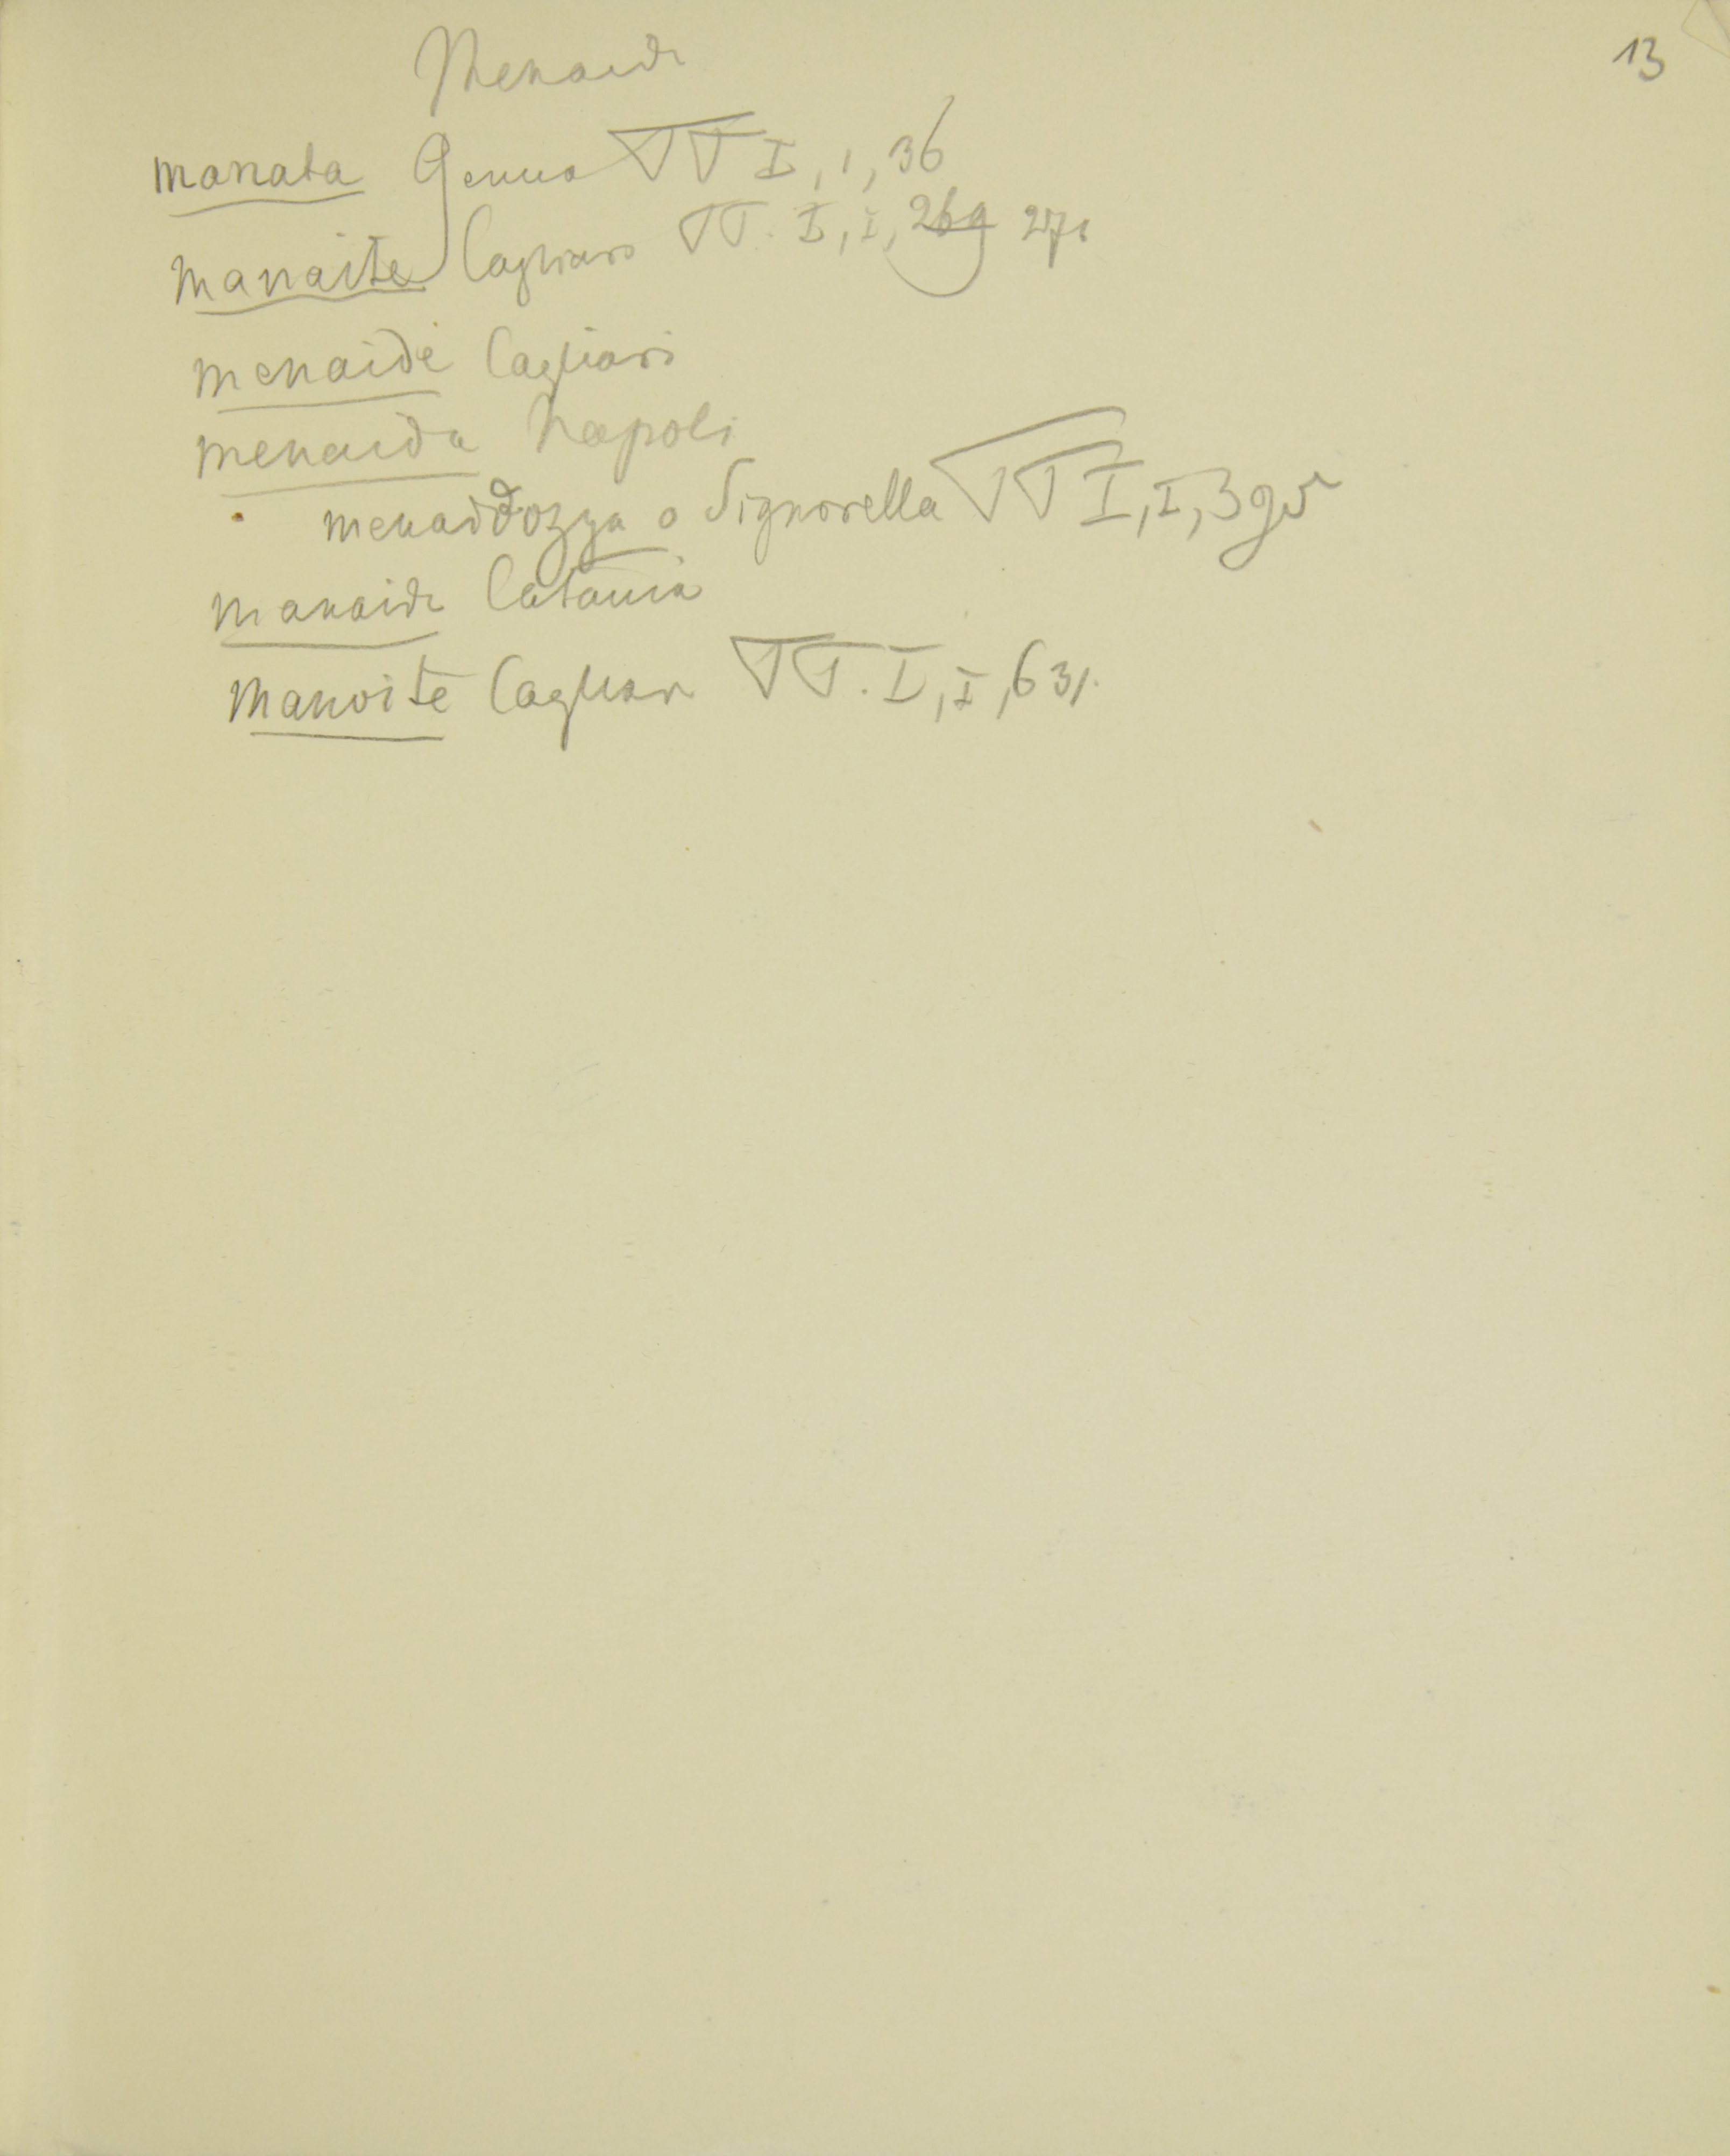 13
Menaide
manata Genua TT I, 1, 36
manaite Cagliari TT. I, I, 269 271
menaide Cagliari
menaida Napoli
menaidozza o Signorella TT I, I, 395
manaide Catania
manoite Cagliari TT. I, I, 631.